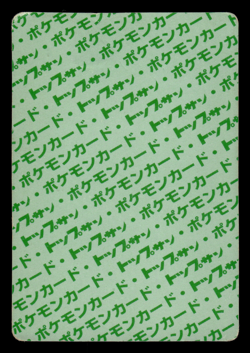 サン・ポケモンカード
ポケモンカード・トップサン・ポケモン
トップサン・ポケモンカード・トップサン
ポケモンカード・トップサン・ポケモンカード
トップサン・ポケモンカード・トップサン
ポケモンカード・トップサン・ポケモンカード
トップサン・ポケモンカード・トップサン
ポケモンカード・トップサン・ポケモンカード
トップサン・ポケモンカード・トップサン
ポケモンカード・トップサン・ポケモンカード
トップサン・ポケモンカード
ポケモンカード